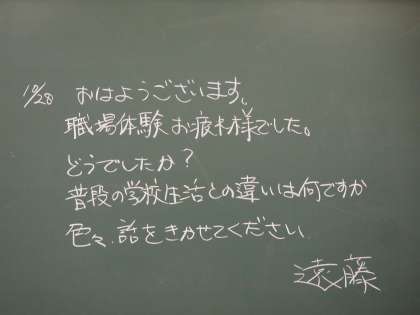 10/28 おはようございます。
職場体験お疲れ様でした。
どうでしたか?
普段の学校生活との違いは何ですか
色々、話をきかせてください
遠藤